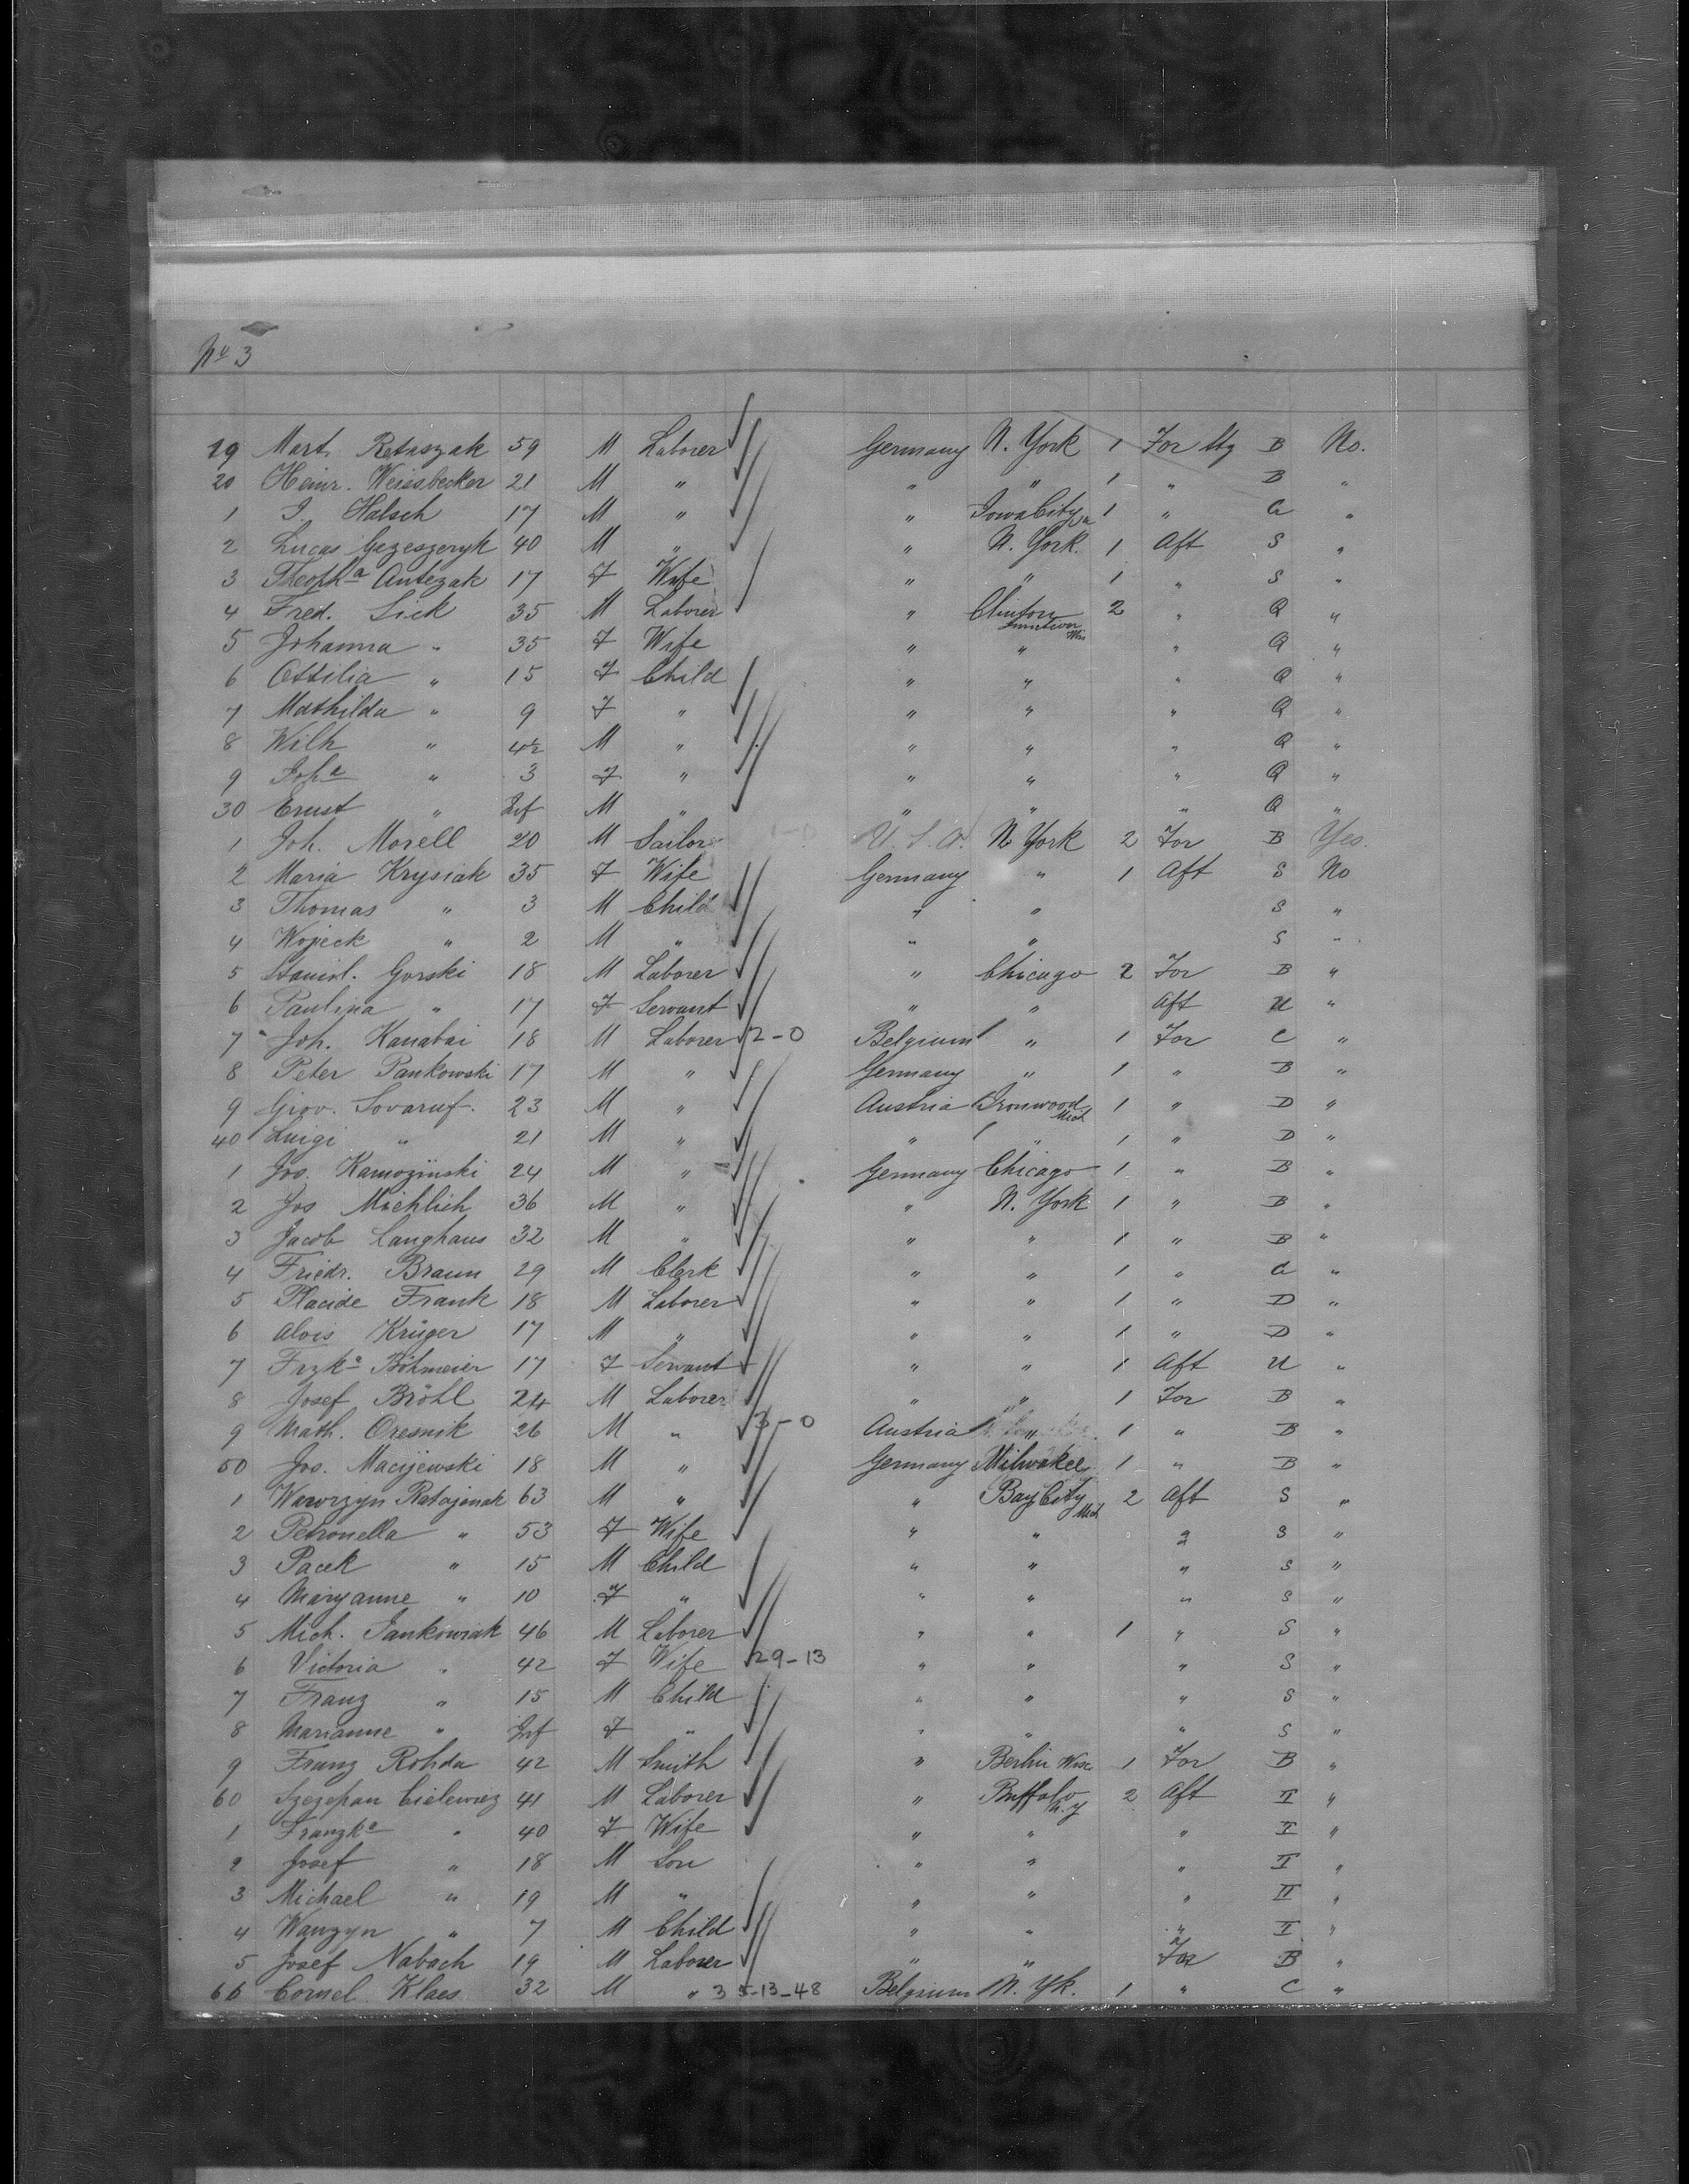 No 3
19 Mart. Rataszak 59 M Laborer Germany N. York 1 For Stg B No.
20 Heinr. Weissbecker 21 M " " " 1 " B "
1 J. Halsch 17 M " " Iowa City Ia 1 " G "
2 Lucas Gezeszeryk 40 M " " N. York. 1 Aft S "
3 Theoph a Antczak 17 F Wife " " 1 " S "
4 Fred. Sick 35 M Laborer " Clinton Junction Wis 2 " Q "
5 Johanna " 35 F Wife " " " Q "
6 Ottilia " 15 F Child " " " Q "
7 Mathilda " 9 F " " " " Q "
8 Wilh " 4½ M " " " " Q "
9 Joh a " 3 F " " " " Q "
30 Ernst " Inf M " " " " Q "
1 Joh. Morell 20 M Sailor 1-0 U.S.A. N York 2 For B Yes.
2 Maria Krysiak 35 F Wife Germany " 1 Aft S No
3 Thomas " 3 M Child " " S "
4 Wojeck " 2 M " " " S "
5 Stanisl. Gorski 18 M Laborer " Chicago 2 For B "
6 Paulina " 17 F Servant " " Aft U "
7 Joh. Kanabai 18 M Laborer 2-0 Belgium " 1 For C "
8 Peter Pankowski 17 M " Germany " 1 " B "
9 Giov. Sovaruf. 23 M " Austria Ironwood Mich 1 " D "
40 Luigi " 21 M " " " 1 " D "
1 Jos. Kamozinski 24 M " Germany Chicago 1 " B "
2 Jos Michlich 36 M " " N. York 1 " B "
3 Jacob Langhaus 32 M " " " 1 " B "
4 Friedr. Braun 29 M Clerk " " 1 " G "
5 Placide Frank 18 M Laborer " " 1 " D "
6 Alois Krüger 17 M " " " 1 " D "
7 Frzk a Böhmeier 17 F Servant " " 1 Aft U "
8 Josef Bröhl 24 M Laborer " " 1 For B "
9 Math. Oresnik 26 M " 3-0 Austria " 1 " B "
50 Jos. Macijewski 18 M " Germany Milwakee 1 " B "
1 Wawrzyn Ratajenak 63 M " " Bay City Mich 2 Aft S "
2 Petronella " 53 F Wife " " 2 S "
3 Pacek " 15 M Child " " " S "
4 Maryanne " 10 F " " " " S "
5 Mich. Jankowiak 46 M Laborer " " 1 " S "
6 Victoria " 42 F Wife 29-13 " " " S "
7 Franz " 15 M Child " " " S "
8 Marianne " Inf F " " " " S "
9 Franz Rohda 42 M Smith " Berlin Wisc 1 For B "
60 Szezepan Cielewiez 41 M Laborer " Buffalo N.Y 2 Aft T "
1 Franzk a " 40 F Wife " " " T "
2 Josef " 18 M Son " " " T "
3 Michael " 19 M " " " " T "
4 Wanzyn " 7 M Child " " " T "
5 Josef Nabach 19 M Laborer " " For B "
66 Cornel. Klaes 32 M " 35-13-48 Belgium N. Yk. 1 " C "